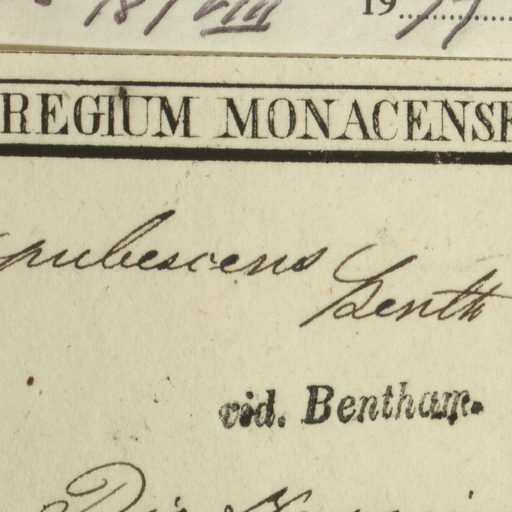 18/VIII 19
REGIUM MONACENSE
pubescens Benth
vid. Bentham.